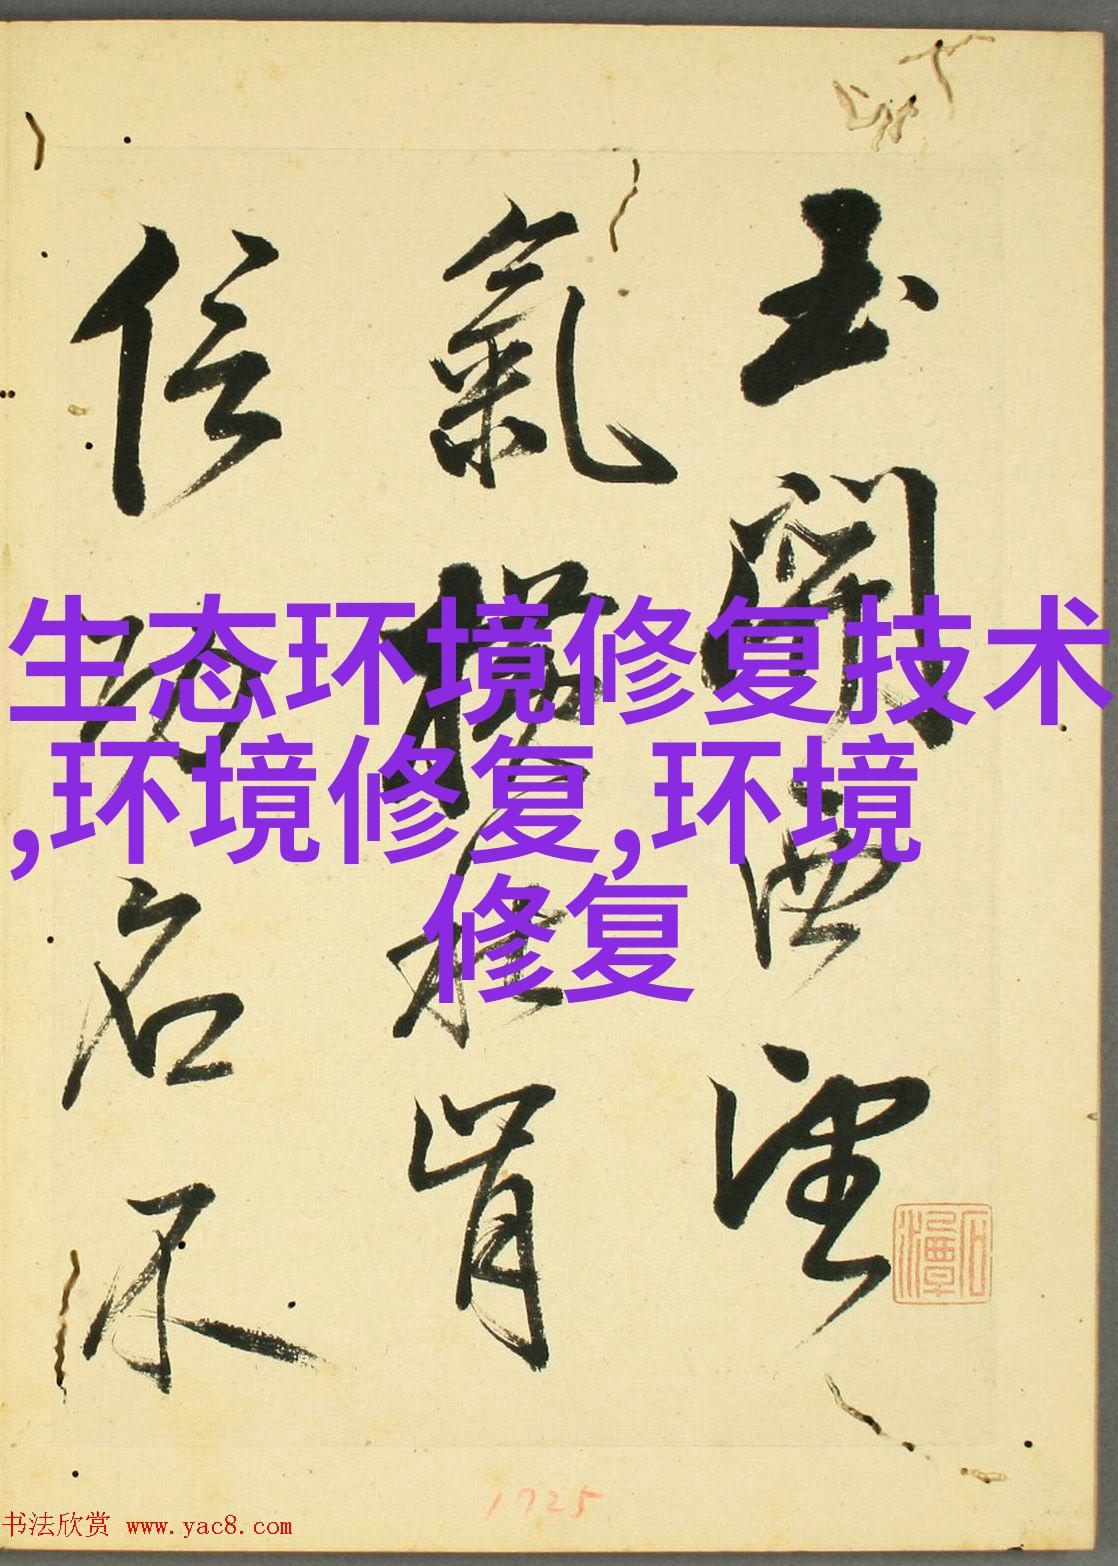 玉關西望
氣橫肯
信功名不
生态环境修复技术
,环境修复,环境
修复
1725
书法欣赏 www.yac8.com